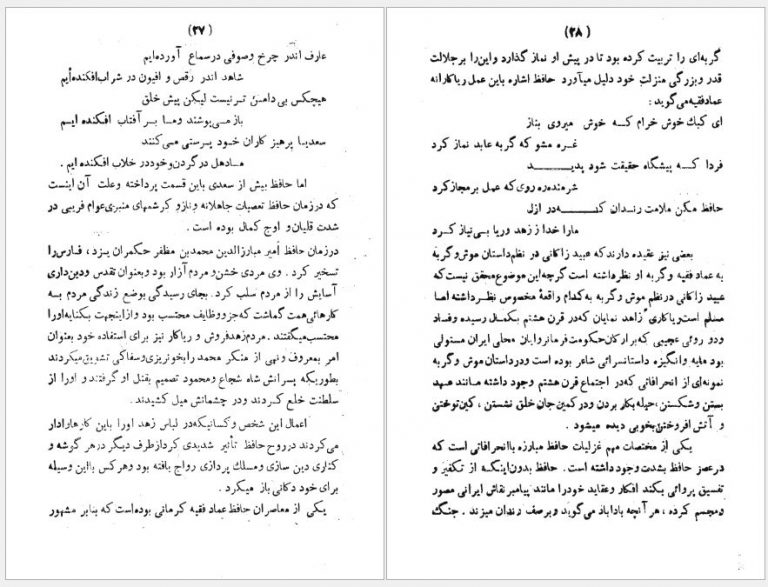 (۲۷)
عارف اندر چرخ وصوفی درسماع آورده‌ایم
شاهد اندر رقص و افیون در شراب‌افکنده‌ایم
هیچکس بی‌دامن تر نیست لیکن پیش خلق
باز می‌پوشند وما بر آفتاب افکنده ایم
سعدیا پرهیز کاران خود پرستی می‌کنند
ما دهل در گردن و خوددر خلاب افکنده ایم .
اما حافظ بیش از سعدی باین قسمت پرداخته وعلت آن اینست
که درزمان حافظ تعصبات جاهلانه ونازو کرشمهای منبری‌عوام فریبی در
شدت قلیان و اوج کمال بوده است .
درزمان حافظ امیر مبارزالدین محمدبن مظفر حکمران یزد، فارس‌را
تسخیر کرد . وی مردی خشن‌و مردم آزار بود وبعنوان تقدس ودین‌داری
آسایش را از مردم سلب کرد. بجای رسیدگی بوضع زندگی مردم به
کارهائی همت گماشت که‌جزو وظایف محتسب بود وازاینجهت بکنایه‌اورا
محتسب میگفتند . مردم‌زهدفروش و ریاکار نیز برای استفاده خود بعنوان
امر بمعروف ونهی از منکر محمد را بخونریزی‌وسفاکی تشویق‌میکردند
بطوریکه پسرانش شاه شجاع ومحمود تصمیم بقتل او گرفتند و اورا از
سلطنت خلع کردند ودر چشمانش میل کشیدند .
اعمال این شخص وکسانیکه‌در لباس زهد اورا باین کارهاوادار
می‌کردند درروح حافظ تأثیر شدیدی کرداز‌طرف دیگر درهر گوشه و
کناری دین سازی و مسلك پردازی رواج یافته بود وهرکس بااین وسیله
برای خود دکانی باز میکرد .
یکی از معاصران حافظ عماد فقیه کرمانی بوده‌است که بنابر مشهور
(۲۸)
گربه‌ای را تربیت کرده بود تا در پیش او نماز گذارد واین‌را برجلالت
قدر و بزرگی منزلت خود دلیل میآورد حافظ اشاره باین عمل ریاکارانه
عمادفقیه می‌گوید :
ای کبك خوش خرام که خوش میروی بناز
غره مشو که گربه عابد نماز کرد
فردا که پیشگاه حقیقت شود پدید
شرمنده ره روی که عمل بر مجاز کرد
حافظ مکن ملامت رندان که در ازل
مارا خدا ز زهد وریا بی‌نیاز کرد
بعضی نیز عقیده دارند که عبید زاکانی در نظم‌داستان موش‌و گربه
به عماد فقیه و گربه او نظرداشته است گرچه این موضوع محقق نیست‌که
عبید زاکانی درنظم موش و گربه به‌کدام واقعهٔ مخصوص نظرداشته اما
مسلم است‌ریاکاری زاهد نمایان که‌در قرن هشتم بکمال رسیده وفساد
ودو روئی عجیبی که‌برارکان‌حکومت‌فرمانروایان محلی ایران مستولی
بود مایه وانگیزه داستانسرائی شاعر بوده است ودرداستان موش وگربه
نمونه‌ای از انحرافاتی که‌در اجتماع قرن هشتم وجود داشته مانند عهد
بستن وشکستن، حیله‌بکار بردن ودر کمین‌جان خلق نشستن ، کین‌توختن
و آتش افروختن بخوبی دیده میشود .
یکی از مختصات مهم غزلیات حافظ مبارزه باانحرافاتی است که
درعصر حافظ بشدت وجود داشته است . حافظ بدون اینکه از تکفیر و
تفسیق پروائی بکند افکار وعقاید خودرا مانند پیامبر نقاش ایرانی مصور
ومجسم کرده ، هر آنچه باداباد می‌گوید و برصف رندان میزند . جنگ